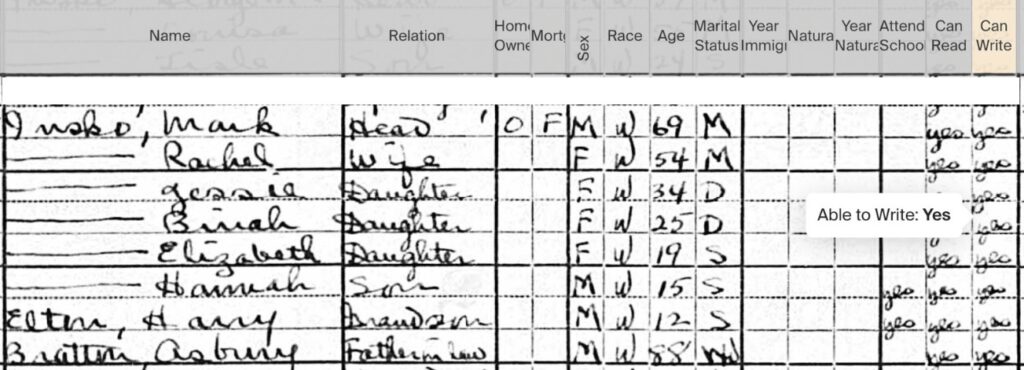 Name Relation Home Owne Mort Sex Race Age Marital Status Year Immigr Natura Year Natura Attend Schoo Can Read Can Write
Insko, Mark Head O F M W 69 M yes yes
Rachel Wife F W 54 M yes yes
Jessie Daughter F W 34 D yes
Binah Daughter F W 25 D yes
Able to Write: Yes
Elizabeth Daughter F W 19 S yes yes
Hannah Son M W 15 S yes yes yes
Elton, Harry Grandson M W 12 S yes yes yes
Bratton Asbury Father in law M W 88 yes yes